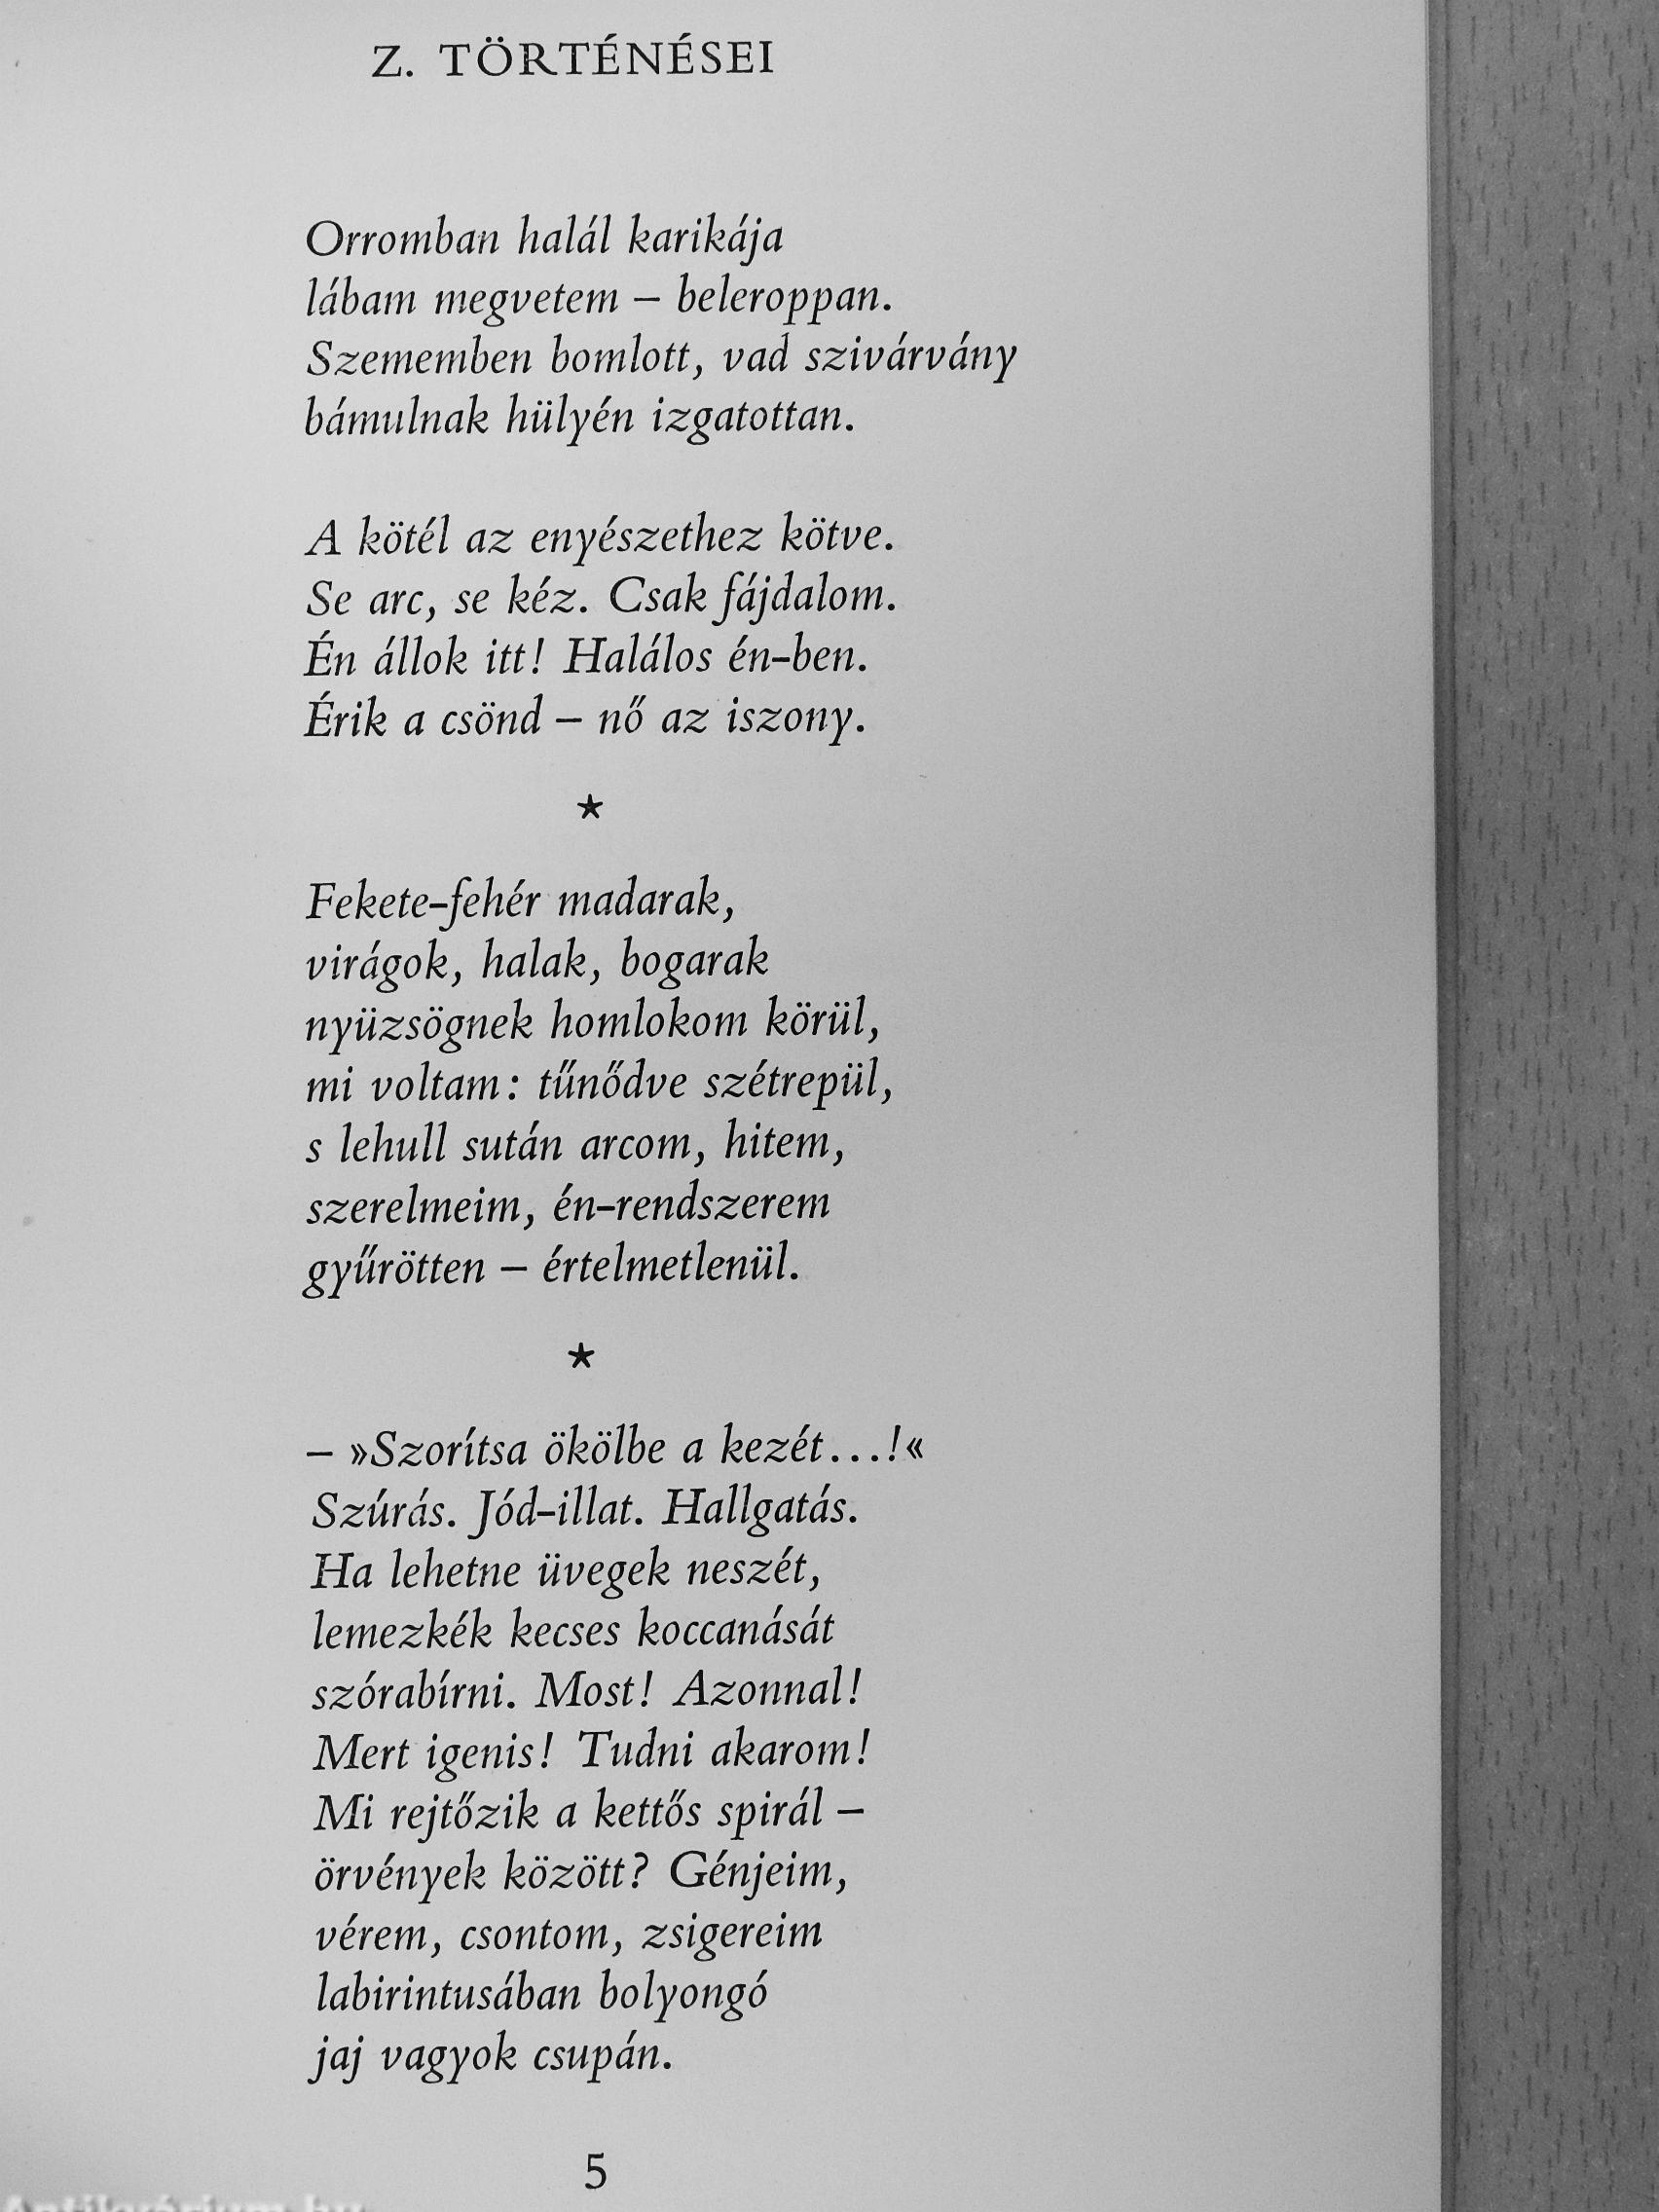 Z. TÖRTÉNÉSEI
Orromban halál karikája
lábam megvetem – beleroppan.
Szememben bomlott, vad szivárvány
bámulnak hülyén izgatottan.
A kötél az enyészethez kötve.
Se arc, se kéz. Csak fájdalom.
Én állok itt! Halálos én-ben.
Érik a csönd – nő az iszony.
*
Fekete-fehér madarak,
virágok, halak, bogarak
nyüzsögnek homlokom körül,
mi voltam: tűnődve szétrepül,
s lehull sután arcom, hitem,
szerelmeim, én-rendszerem
gyűrötten – értelmetlenül.
*
– »Szorítsa ökölbe a kezét...!«
Szúrás. Jód-illat. Hallgatás.
Ha lehetne üvegek neszét,
lemezkék kecses koccanását
szórabírni. Most! Azonnal!
Mert igenis! Tudni akarom!
Mi rejtőzik a kettős spirál –
örvények között? Génjeim,
vérem, csontom, zsigereim
labirintusában bolyongó
jaj vagyok csupán.
5
Antikvárium.hu